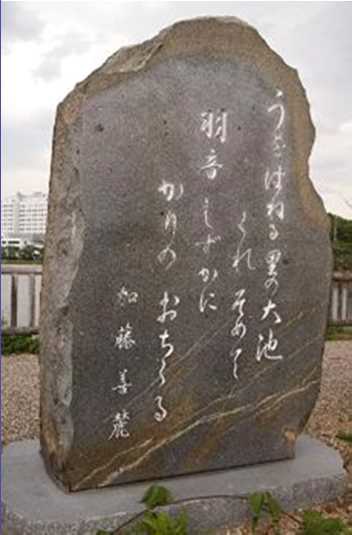 うさはねる里の大池
くれそめて
羽音しずかに
かりの おちくる
加藤善麓